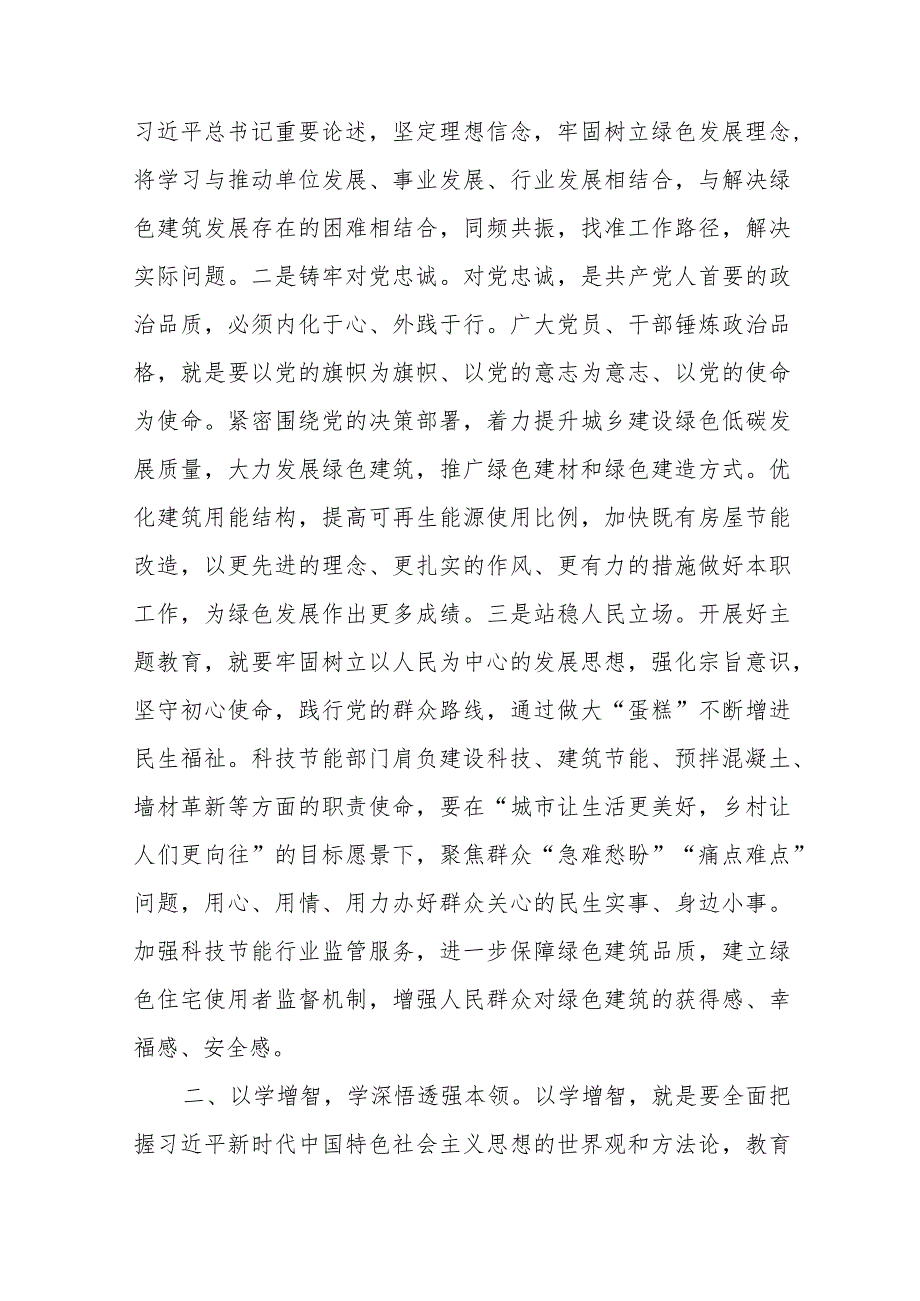 习近平总书记重要论述，坚定理想信念，牢固树立绿色发展理念，
将学习与推动单位发展、事业发展、行业发展相结合，与解决绿
色建筑发展存在的困难相结合，同频共振，找准工作路径，解决
实际问题。二是铸牢对党忠诚。对党忠诚，是共产党人首要的政
治品质，必须内化于心、外践于行。广大党员、干部锤炼政治品
格，就是要以党的旗帜为旗帜、以党的意志为意志、以党的使命
为使命。紧密围绕党的决策部署，着力提升城乡建设绿色低碳发
展质量，大力发展绿色建筑，推广绿色建材和绿色建造方式。优
化建筑用能结构，提高可再生能源使用比例，加快既有房屋节能
改造，以更先进的理念、更扎实的作风、更有力的措施做好本职
工作，为绿色发展作出更多成绩。三是站稳人民立场。开展好主
题教育，就要牢固树立以人民为中心的发展思想，强化宗旨意识，
坚守初心使命，践行党的群众路线，通过做大“蛋糕”不断增进
民生福祉。科技节能部门肩负建设科技、建筑节能、预拌混凝土、
墙材革新等方面的职责使命，要在“城市让生活更美好，乡村让
人们更向往”的目标愿景下，聚焦群众“急难愁盼”“痛点难点”
问题，用心、用情、用力办好群众关心的民生实事、身边小事。
加强科技节能行业监管服务，进一步保障绿色建筑品质，建立绿
色住宅使用者监督机制，增强人民群众对绿色建筑的获得感、幸
福感、安全感。
二、以学增智，学深悟透强本领。以学增智，就是要全面把
握习近平新时代中国特色社会主义思想的世界观和方法论，教育